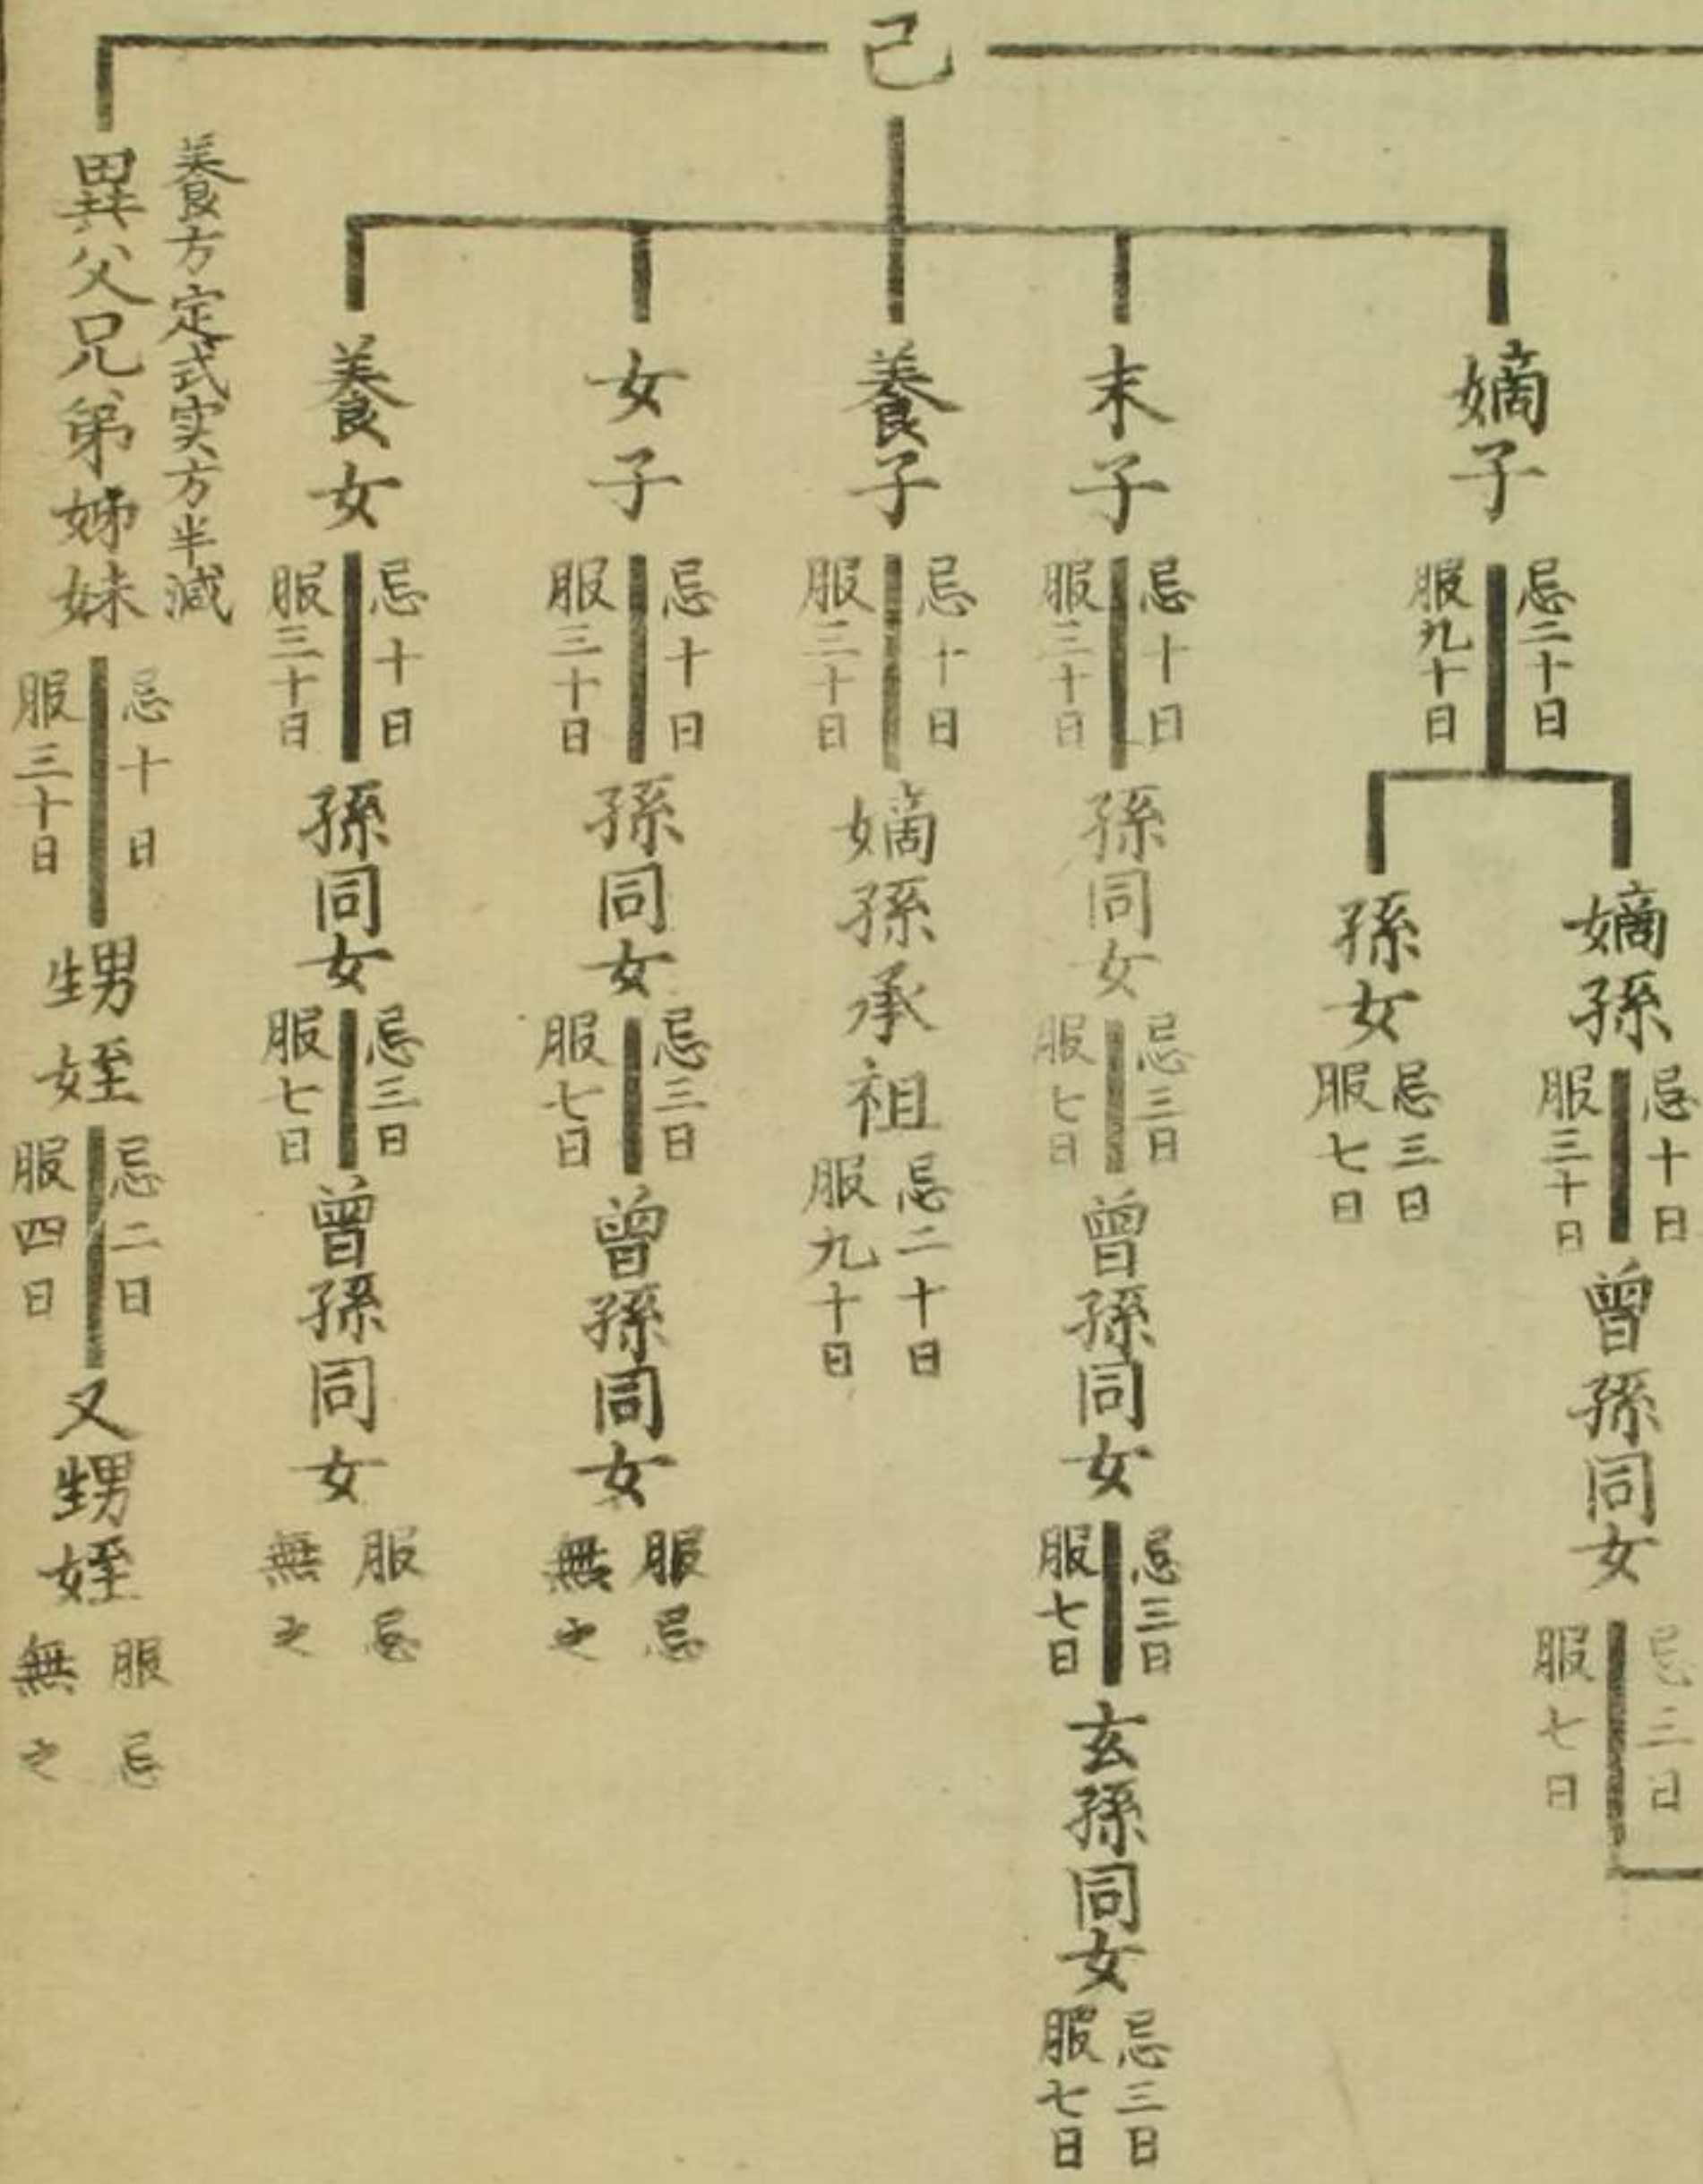 己
嫡子
忌二十日
服九十日
嫡孫
忌十日
服三十日
曾孫同女
忌三日
服七日
孫女
忌三日
服七日
末子
忌十日
服三十日
孫同女
忌三日
服七日
曾孫同女
忌三日
服七日
玄孫同女
忌三日
服七日
養子
忌十日
服三十日
嫡孫承祖
忌二十日
服九十日
女子
忌十日
服三十日
孫同女
忌三日
服七日
曾孫同女
服忌
無之
養女
忌十日
服三十日
孫同女
忌三日
服七日
曾孫同女
服忌
無之
養方定式実方半減
異父兄弟姉妹
忌十日
服三十日
甥姪
忌二日
服四日
又甥姪
服忌
無之